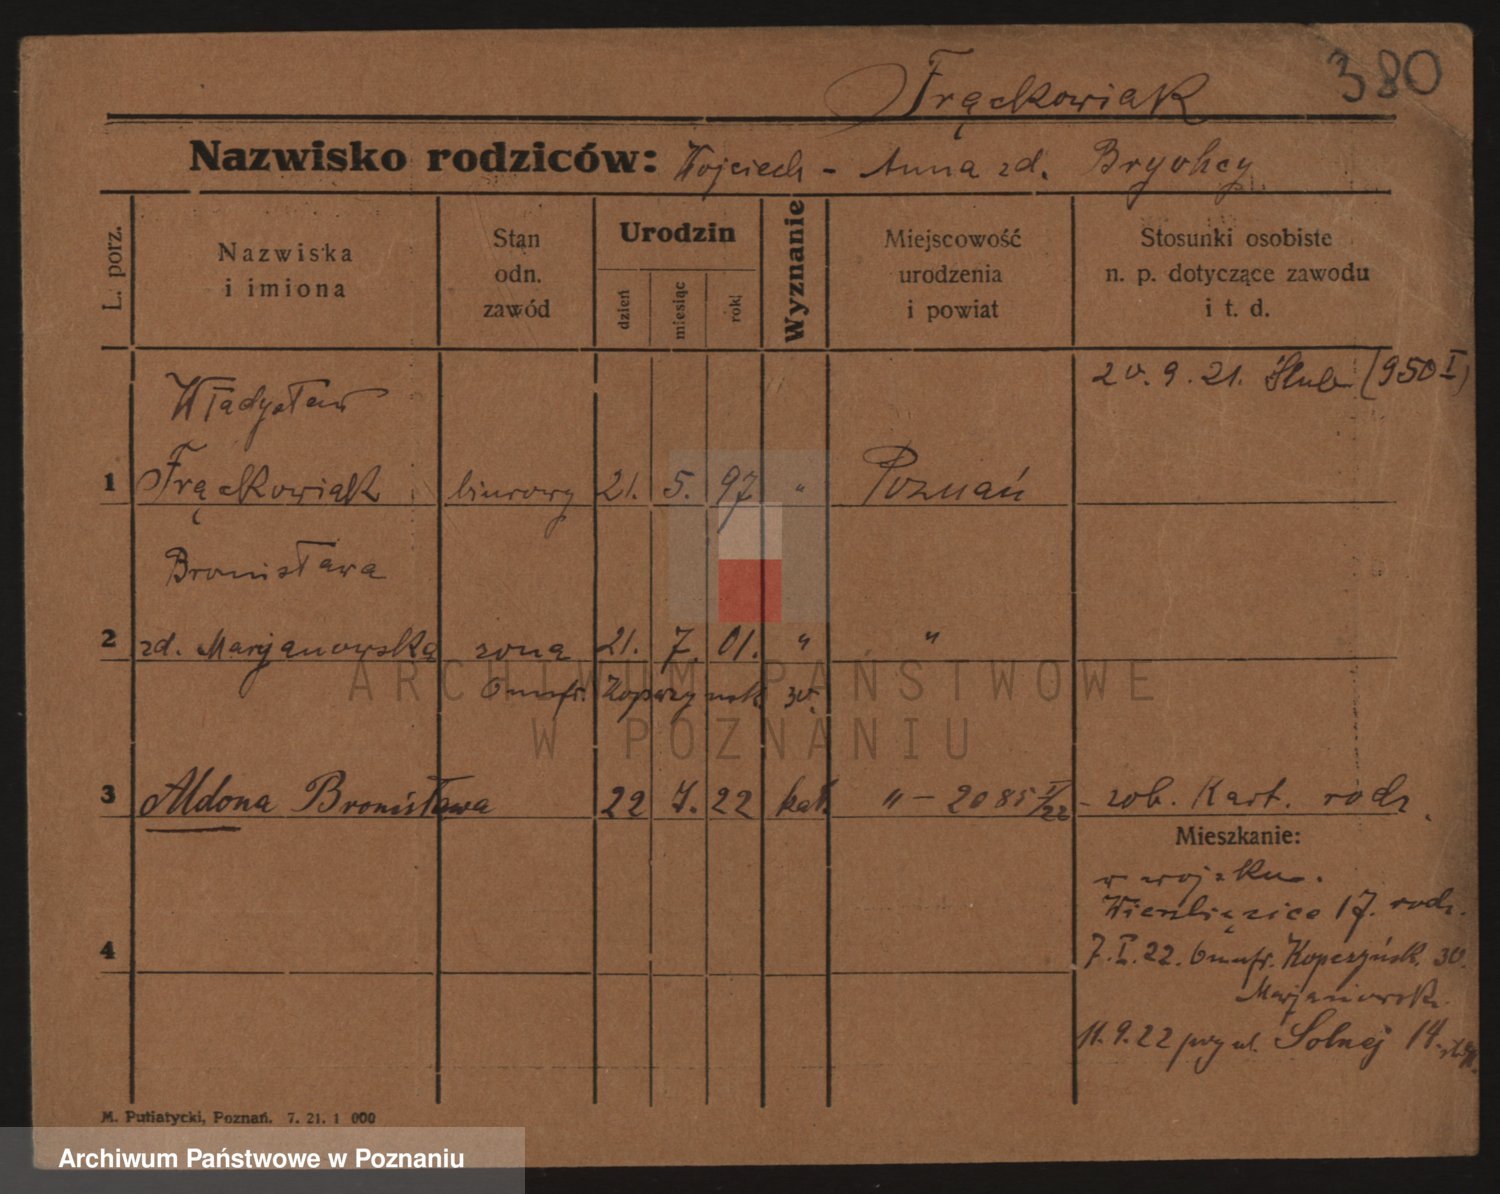 380
Frąckowiak
Nazwisko rodziców: Wojciech - Anna zd.
L. porz.
Nazwiska
i imiona
Stan
odn.
zawód
Urodzin
dzień
miesiąc
rok
Wyznanie
Miejscowość
urodzenia
i powiat
Stosunki osobiste
n. p. dotyczące zawodu
i t. d.
20. 9. 21. Ślub (950 I)
Władysław
1 Frąckowiak biurowy 21. 5. 97 " Poznań
Bronisława
2 zd. Marjanowska żona 21. 7. 01. " "
ARCHIWUM PAŃSTWOWE
W POZNANIU
3 Aldona Bronisława 22 7. 22 kat. " - 2085 - zob. Kart. rodz.
Mieszkanie:
w wojsku.
Wierzbięcice 17. rodz.
4
7. I. 22. Kopczyńsk. 30.
Marjanowsk.
11. 9. 22 przy ul. Solnej 14.
M. Putiatycki, Poznań. 7. 21. 1 000
Archiwum Państwowe w Poznaniu